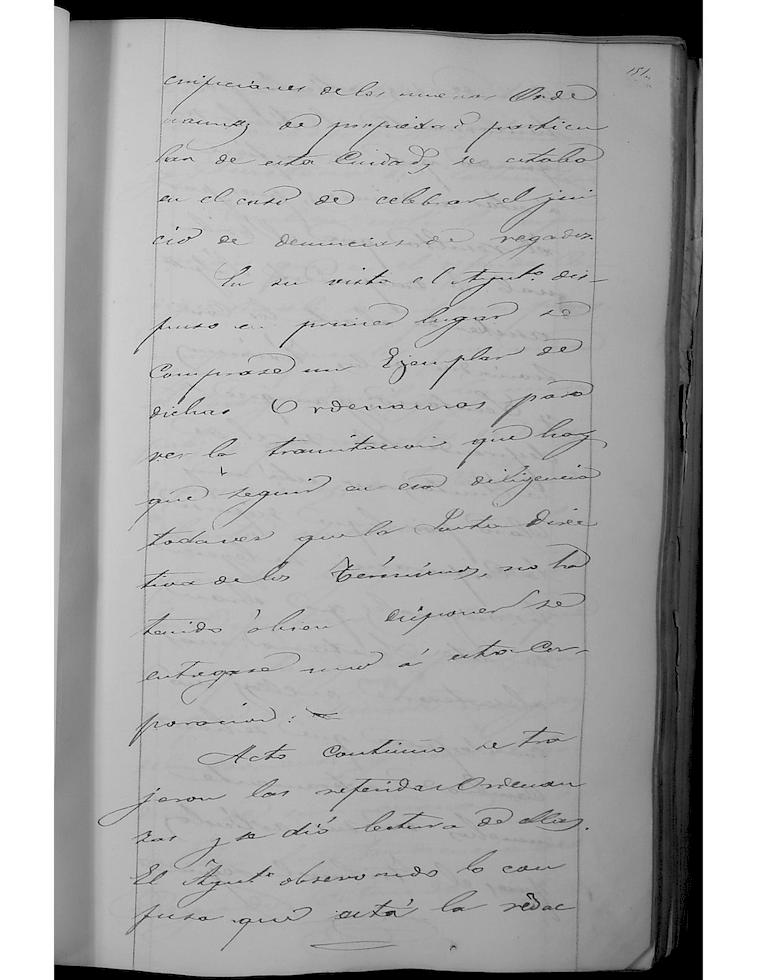 151
cripciones de las nuevas Orde
nanzas de propiedad particu
lar de esta Ciudad, se estaba
en el caso de celebrar el jui
cio de denuncias de regadío.
En su vista el Ayuntº dis-
puso en primer lugar se
comprase un Ejemplar de
dichas Ordenanzas para
ver la tramitacion que hay
que seguir en esa diligencia
toda vez que la Junta Direc
tiva de los Términos, no ha
tenido á bien disponer se
entregase uno á esta Cor-
poracion:
Acto continuo se tra
jeron las referidas Ordenan
zas y se dió lectura de ellas.
El Ayuntº observando lo con
fusa que está la redac